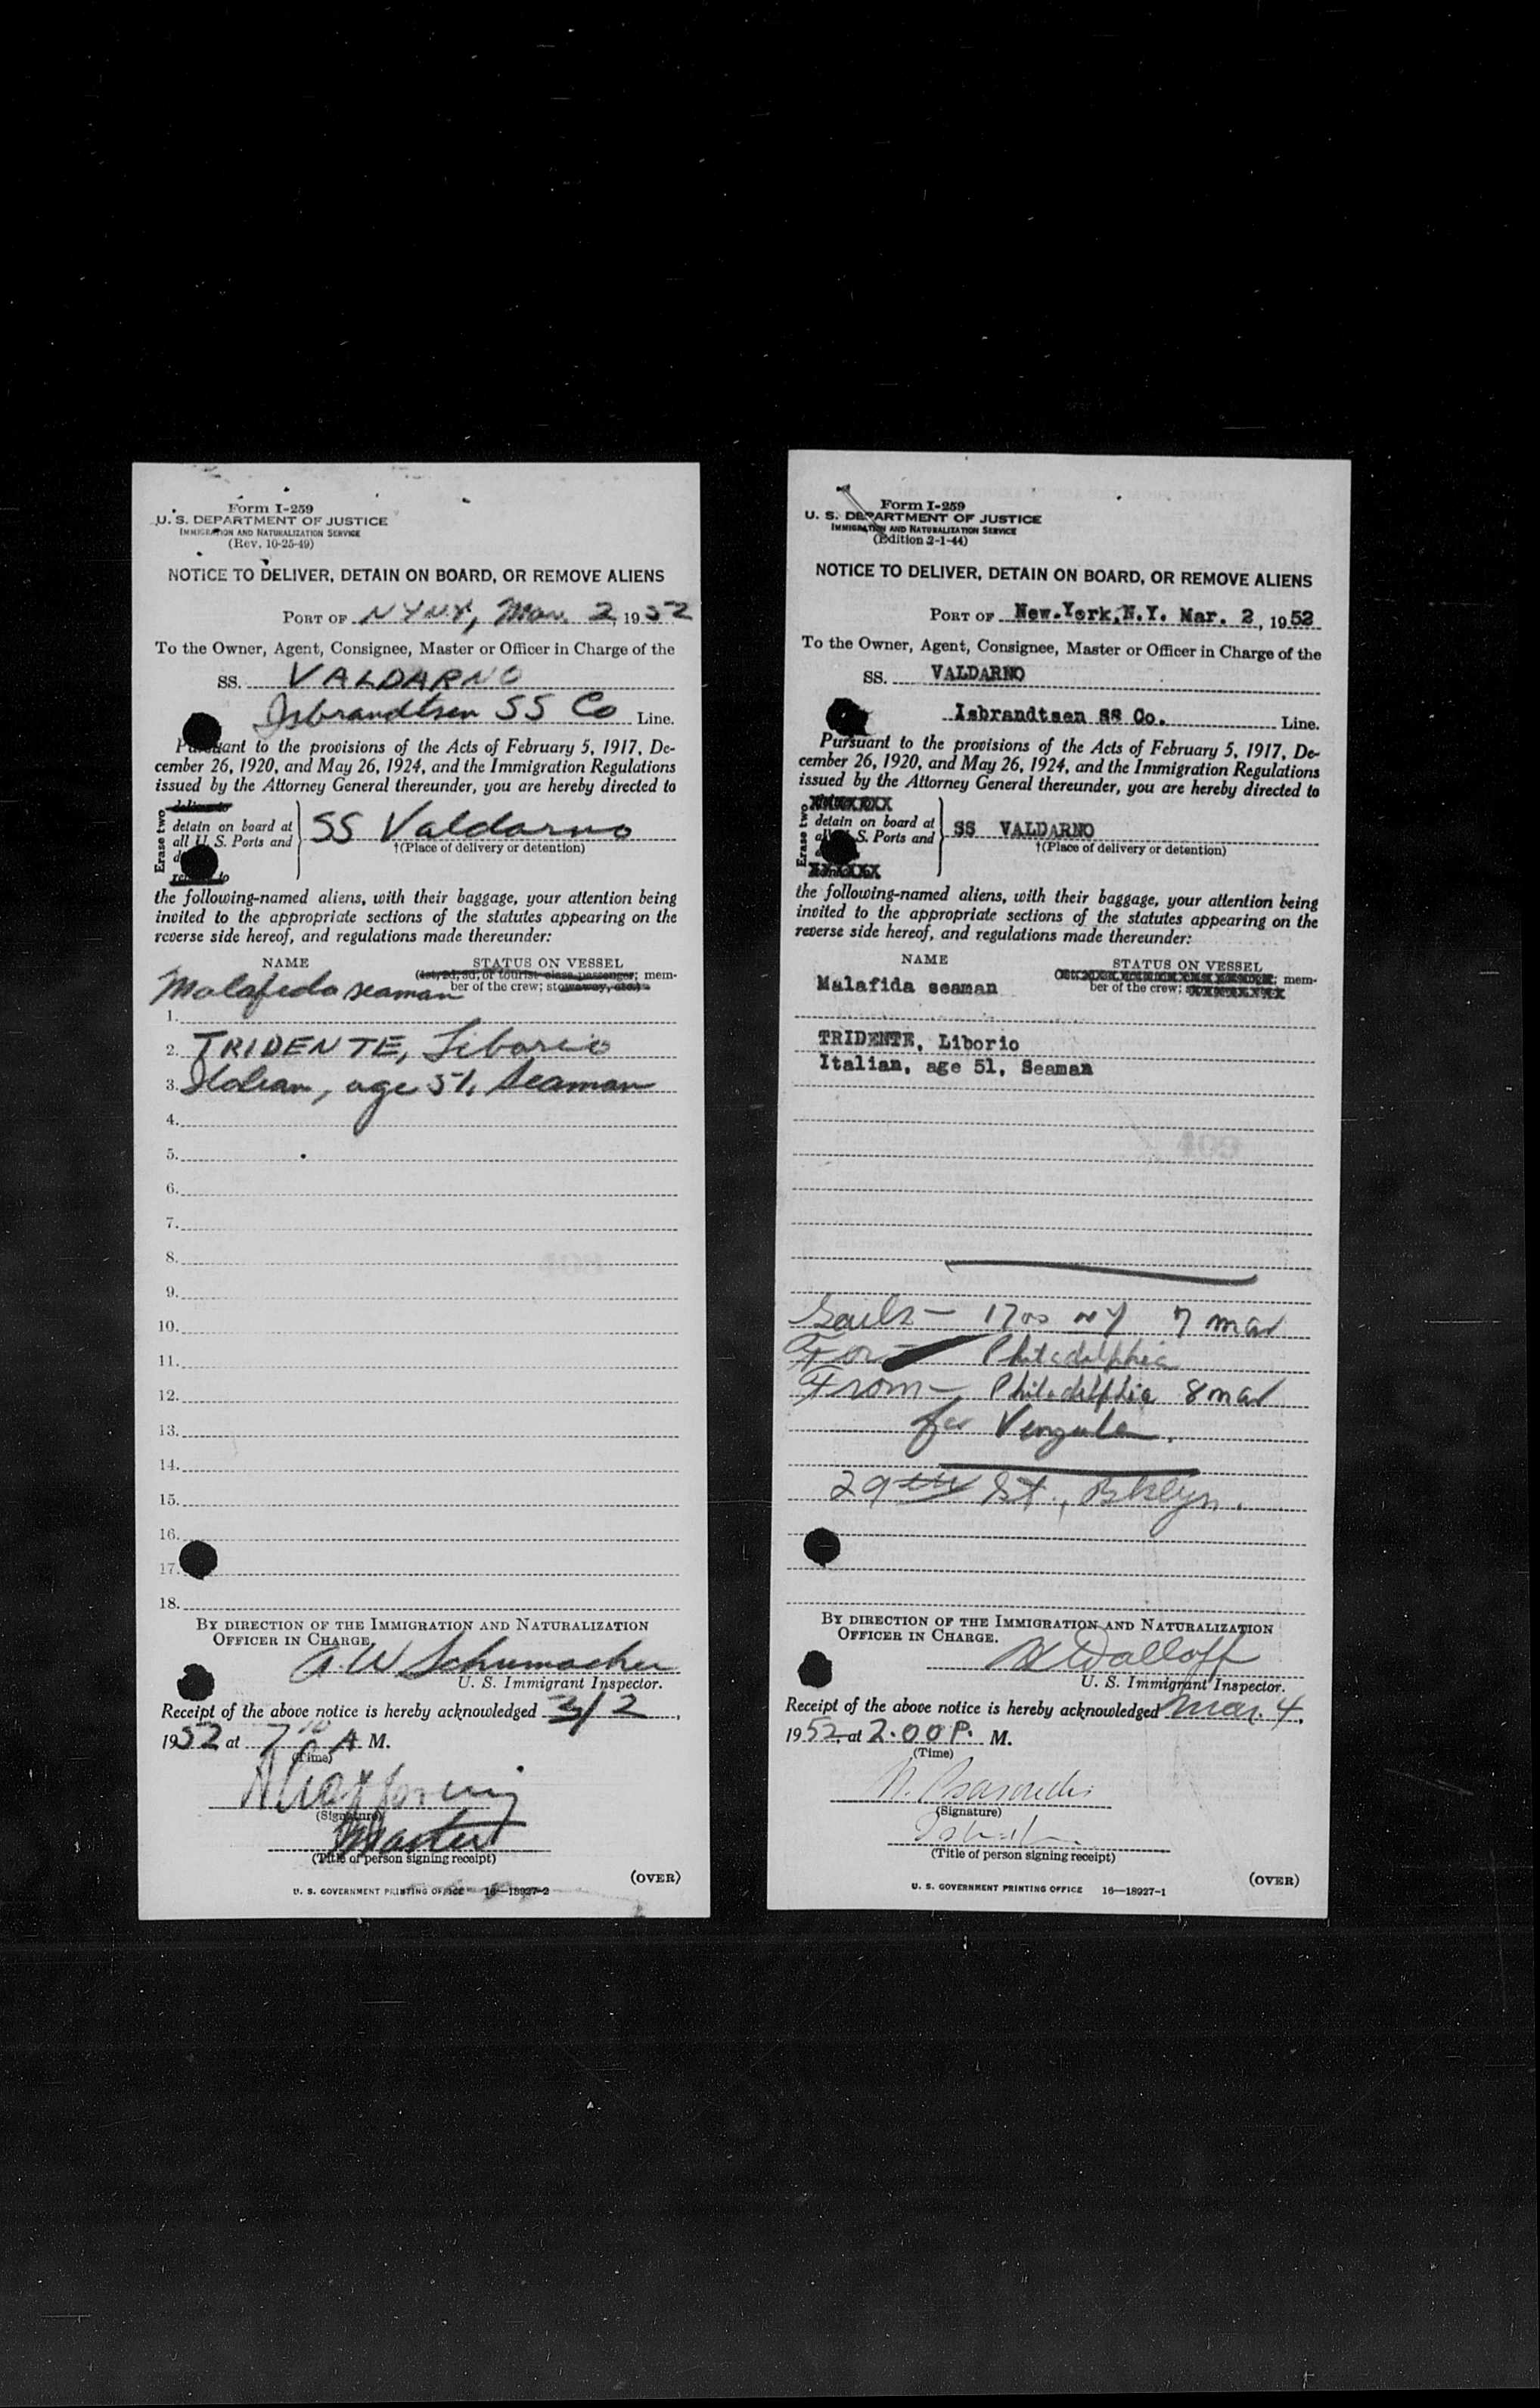 Form I-259
U. S. DEPARTMENT OF JUSTICE
IMMIGRATION AND NATURALIZATION SERVICE
(Rev. 10-25-49)
NOTICE TO DELIVER, DETAIN ON BOARD, OR REMOVE ALIENS
PORT OF NYNY, Mar. 2, 1952
To the Owner, Agent, Consignee, Master or Officer in Charge of the
SS. VALDARNO
Isbrandtsen SS Co Line.
Pursuant to the provisions of the Acts of February 5, 1917, De-
cember 26, 1920, and May 26, 1924, and the Immigration Regulations
issued by the Attorney General thereunder, you are hereby directed to
Erase two
deliver to
detain on board at
all U. S. Ports and
SS Valdarno
†(Place of delivery or detention)
the following-named aliens, with their baggage, your attention being
invited to the appropriate sections of the statutes appearing on the
reverse side hereof, and regulations made thereunder:
NAME STATUS ON VESSEL
(1st, 2d, 3d, or tourist class passenger; mem-
Malafida seaman ber of the crew; stowaway, etc.)
1.
2. TRIDENTE, Liborio
3. Italian, age 51, Seaman
4.
5.
6.
7.
8.
9.
10.
11.
12.
13.
14.
15.
16.
17.
18.
BY DIRECTION OF THE IMMIGRATION AND NATURALIZATION
OFFICER IN CHARGE.
A W Schumacher
U. S. Immigrant Inspector.
Receipt of the above notice is hereby acknowledged 3/2,
1952 at 7 10 A M.
(Time)
(Signature)
Master
(Title of person signing receipt)
(OVER)
U. S. GOVERNMENT PRINTING OFFICE 16—18927-2
Form I-259
U. S. DEPARTMENT OF JUSTICE
IMMIGRATION AND NATURALIZATION SERVICE
(Edition 2-1-44)
NOTICE TO DELIVER, DETAIN ON BOARD, OR REMOVE ALIENS
PORT OF New York, N.Y. Mar. 2, 1952
To the Owner, Agent, Consignee, Master or Officer in Charge of the
SS. VALDARNO
Isbrandtsen SS Co. Line.
Pursuant to the provisions of the Acts of February 5, 1917, De-
cember 26, 1920, and May 26, 1924, and the Immigration Regulations
issued by the Attorney General thereunder, you are hereby directed to
Erase two
detain on board at
all U. S. Ports and
SS VALDARNO
†(Place of delivery or detention)
the following-named aliens, with their baggage, your attention being
invited to the appropriate sections of the statutes appearing on the
reverse side hereof, and regulations made thereunder:
NAME STATUS ON VESSEL
mem-
Malafida seaman ber of the crew;
TRIDENTE, Liborio
Italian, age 51, Seaman
Sails — 1700 NY 7 mar
For — Philadelphia
From — Philadelphia 8 mar
for
29th St., Bklyn.
BY DIRECTION OF THE IMMIGRATION AND NATURALIZATION
OFFICER IN CHARGE.
Walloff
U. S. Immigrant Inspector.
Receipt of the above notice is hereby acknowledged Mar. 4,
1952, at 2.00 P. M.
(Time)
(Signature)
(Title of person signing receipt)
(OVER)
U. S. GOVERNMENT PRINTING OFFICE 16—18927-1